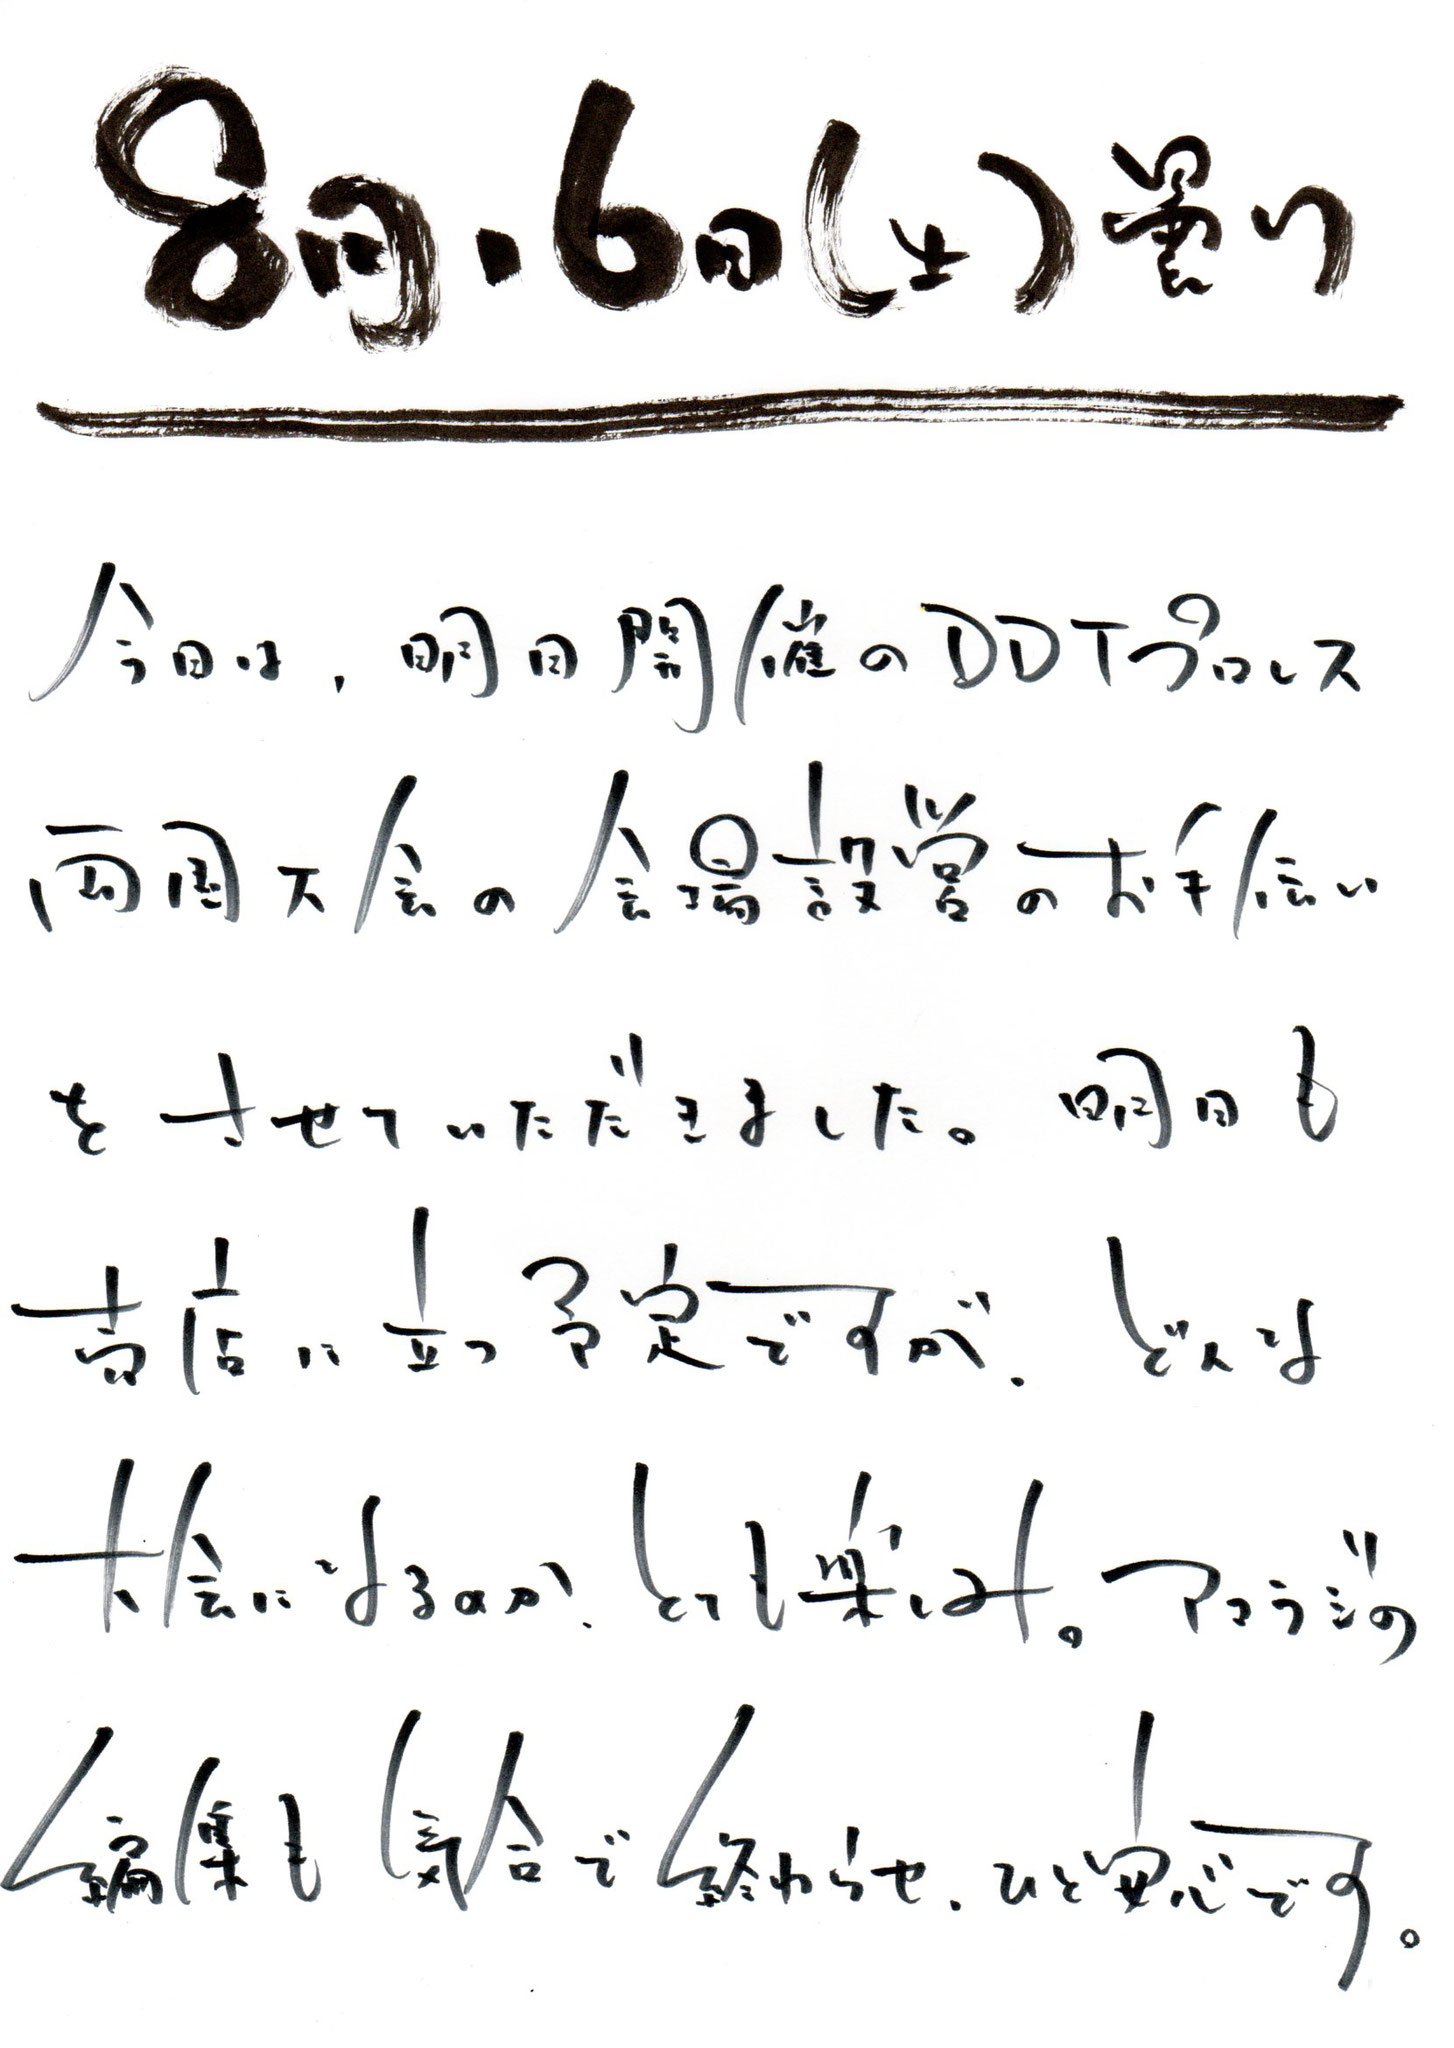 8月、6日(土)曇り
今日は、明日開催のDDTプロレス
両国大会の会場設営のお手伝い
をさせていただきました。明日も
売店に立つ予定ですが、どんな
大会になるのか、とても楽しみ。アコラジの
編集も気合で終わらせ、ひと安心です。